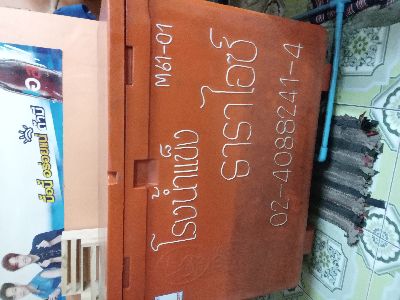 มื้อนี้ อร่อยแน่ ถ้ามี
M61-01
โรงน้ำแข็ง
ธาราไอซ์
02-4088241-4